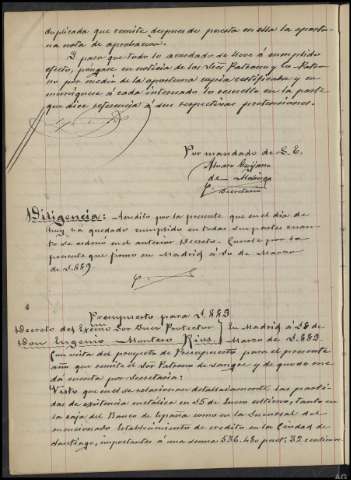 duplicada que remite despues de puesta en ella la oportu-
na nota de aprobacion.
Y para que todo lo acordado se lleve á cumplido
efecto, pongase en noticia de los Sres Patrono y la Patro-
no por medio de la oportuna copia certificada y co-
muniquese á cada interesado lo resuelto en la parte
que dice referencia á sus respectivas pretensiones.
Por mandado de S. E.
Alvaro Quijano
de
Secretario
Diligencia: Acredito por la presente que en el dia de
hoy, ha quedado cumplido en todas sus partes cuan-
to se ordenó en el anterior Decreto. Conste por la
presente que firmo en Madrid á de Marzo
de 1.889
Presupuesto para 1.889
Decreto del Excmo Sor Buen Protector
Don Eugenio Montero Rios.
En Madrid á 28 de
Marzo de 1.889.
Con vista del proyecto de Presupuesto para el presente
año que remite el Sor Patrono de sangre y de que de me
dá cuenta por Secretaria:
Visto que en el se relacionan detalladamente las parti-
das de existencia metálica en 25 de Enero ultimo, tanto en
la caja del Banco de España como en la Sucursal del
mencionado Establecimiento de credito en la Ciudad de
Santiago, importantes á una suma 536.480 pest. 32 centimos